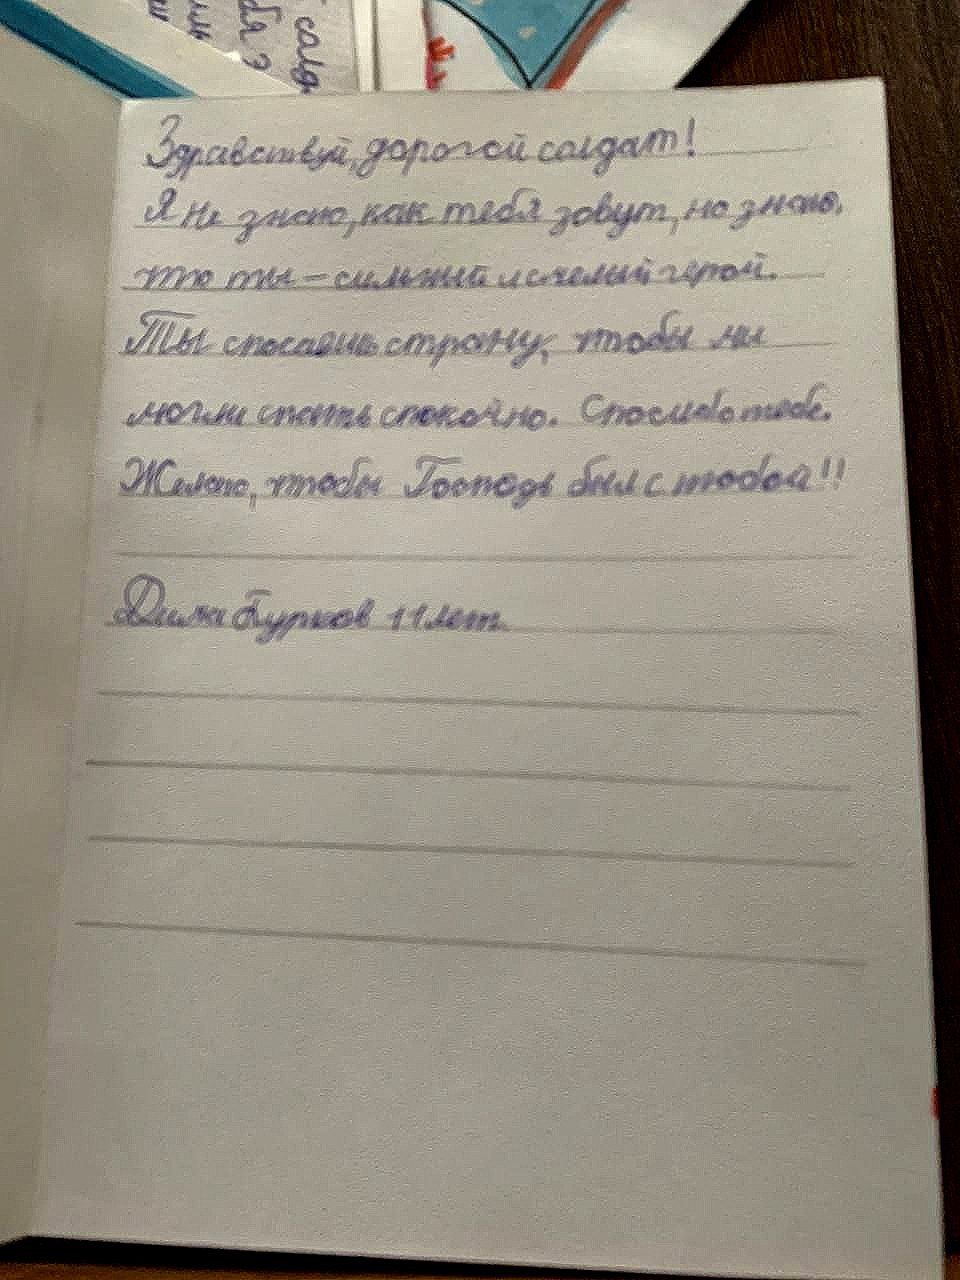 солд
бя з
Здравствуй, дорогой солдат!
Я не знаю, как тебя зовут, но знаю,
что ты – сильный и смелый герой.
Ты спасаешь страну, чтобы мы
могли спать спокойно. Спасибо тебе.
Желаю, чтобы Господь был с тобой!!
Дима Бурков 11 лет.